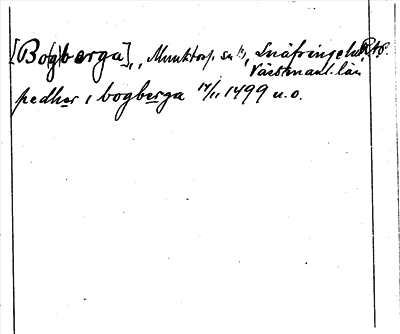 [Bo(g)berga], Munktorp sn, Snäfringe hd, RAp.
Västmanl. län
pedher i bogberga 14/11 1499 u.o.